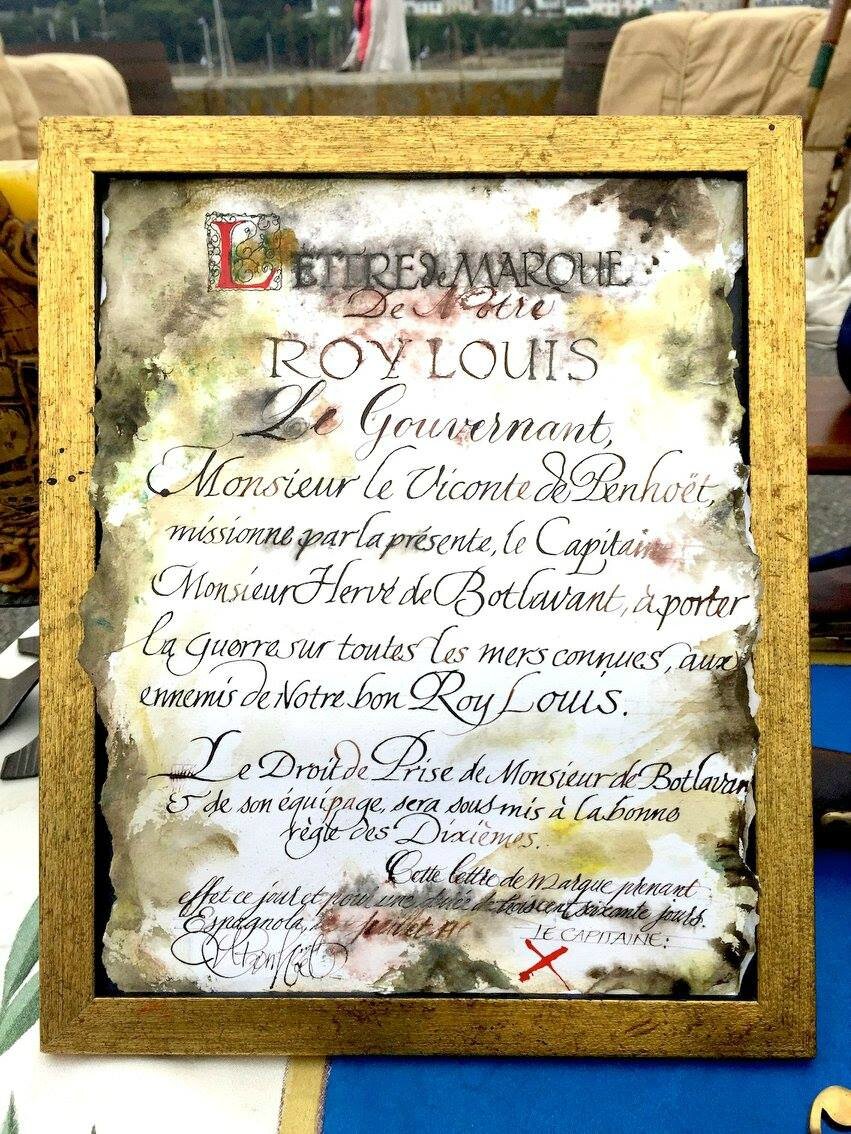 LETTRE de MARQUE
De Notre
ROY LOUIS
Le Gouvernant,
Monsieur le Viconte de Penhoët,
missionne par la présente, le Capitaine
Monsieur Hervé de Botlavant, à porter
la Guerre sur toutes les mers connues, aux
ennemis de Notre bon Roy Louis.
Le Droit de Prise de Monsieur de Botlavan
& de son équipage, sera sousmis à la bonne
règle des Dixièmes.
Cette lettre de marque prenant
effet ce jour et pour une durée de trois cent soixante jours.
Espagnola, le juillet
LE CAPITAINE:
X